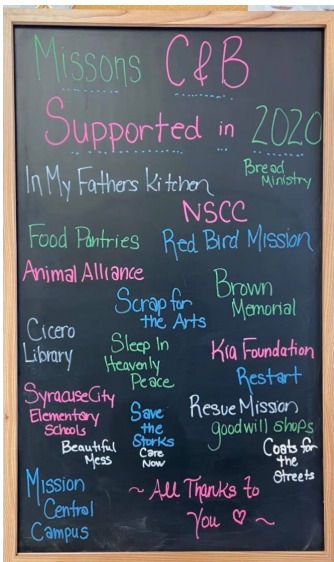 Missons C&B
Supported in 2020
In My Fathers Kitchen
Bread
Ministry
NSCC
Food Pantries
Red Bird Mission
Animal Alliance
Brown
Memorial
Scrap for
the Arts
Cicero
Library
Sleep In
Heavenly
Peace
Kia Foundation
Restart
Syracuse City
Elementary
Schools
Save
the
Storks
Resue Mission
goodwill shops
Beautiful
Mess
Care
Now
Coats for
the
Streets
Mission
Central
Campus
~ All Thanks to
You ♡ ~